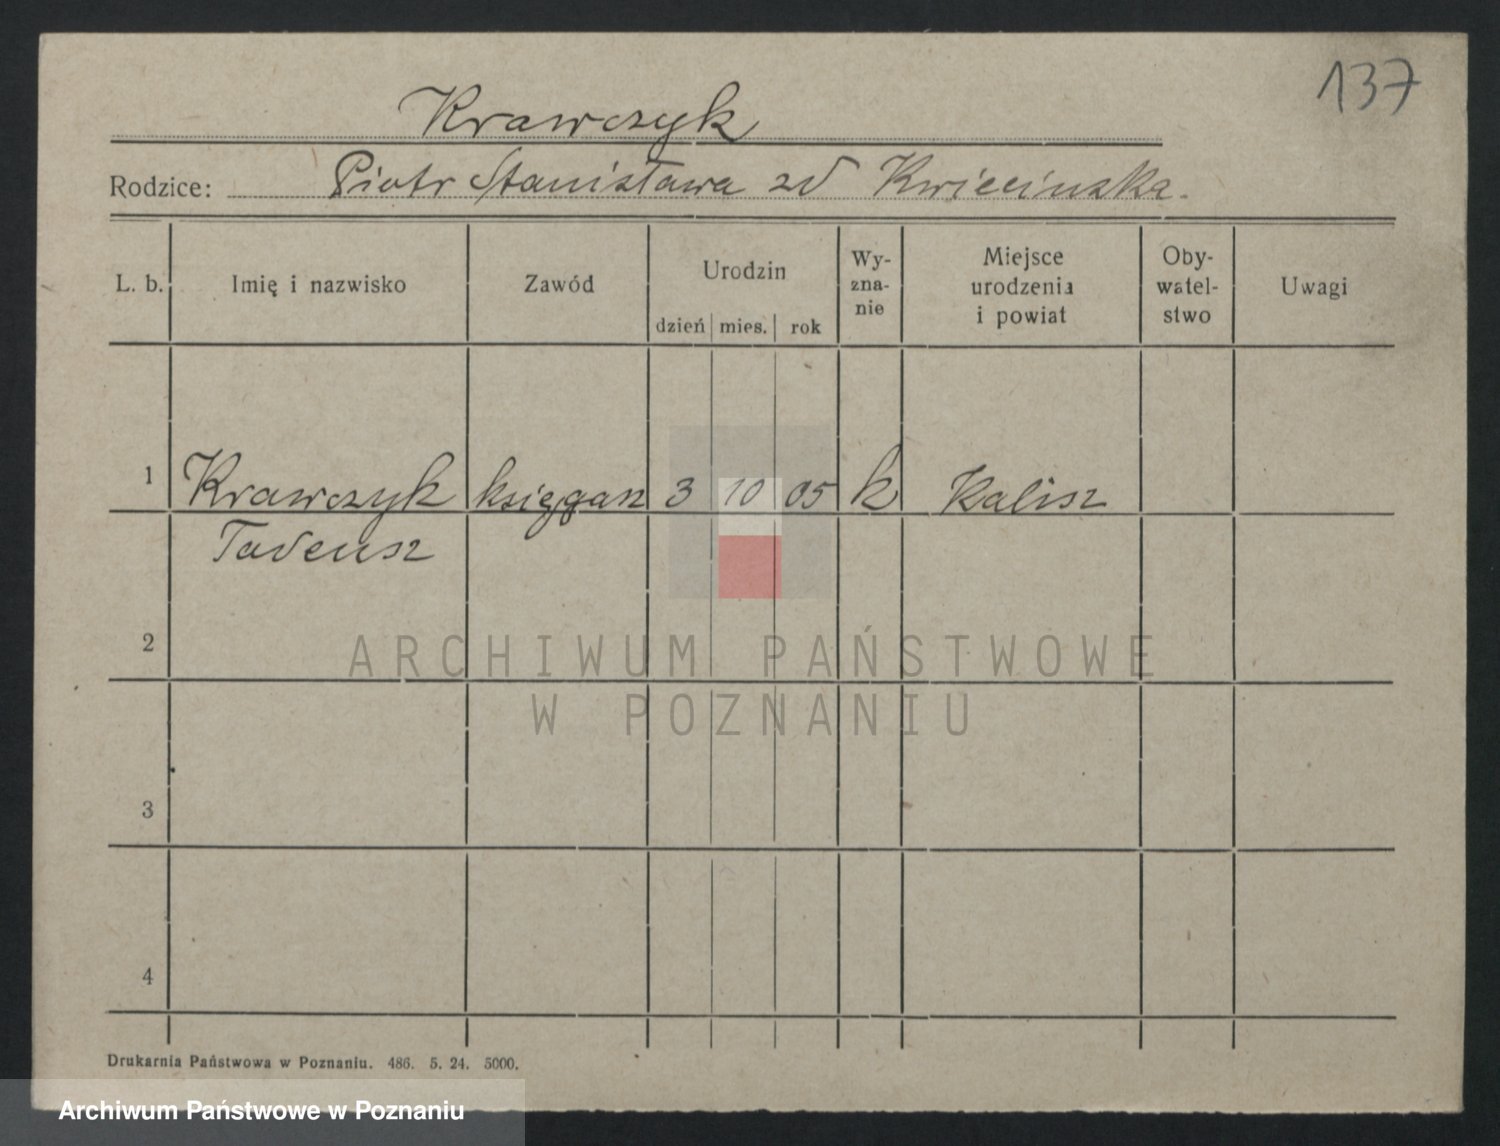 137
Krawczyk
Rodzice: Piotr Stanisława zd Kwiecinska.
L. b. Imię i nazwisko Zawód Urodzin dzień mies. rok Wy-zna-nie Miejsce urodzenia i powiat Oby-watel-stwo Uwagi
1 Krawczyk księgarz 3 10 05 k Kalisz
Tadeusz
2
ARCHIWUM PAŃSTWOWE
W POZNANIU
3
4
Drukarnia Państwowa w Poznaniu. 486. 5. 24. 5000.
Archiwum Państwowe w Poznaniu